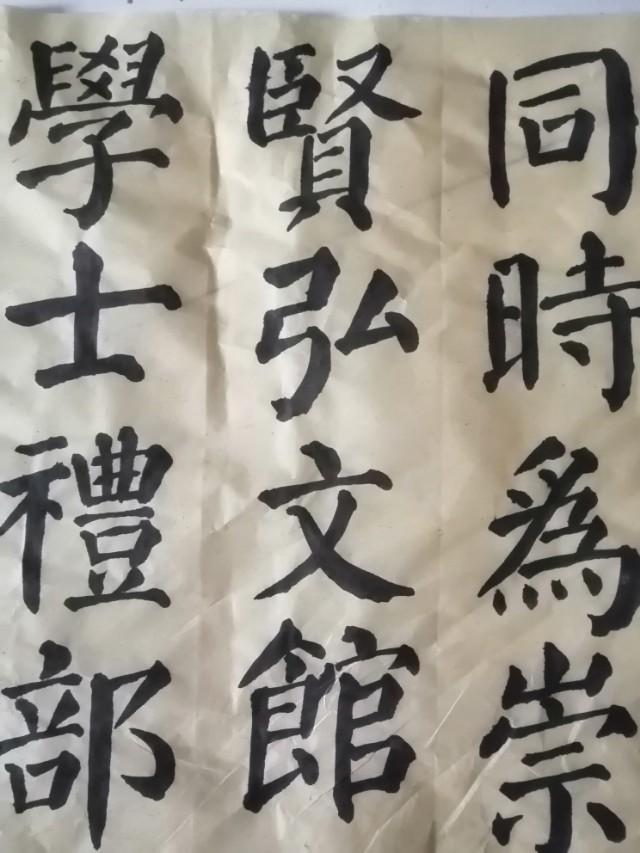 同時為崇
賢弘文館
學士禮部